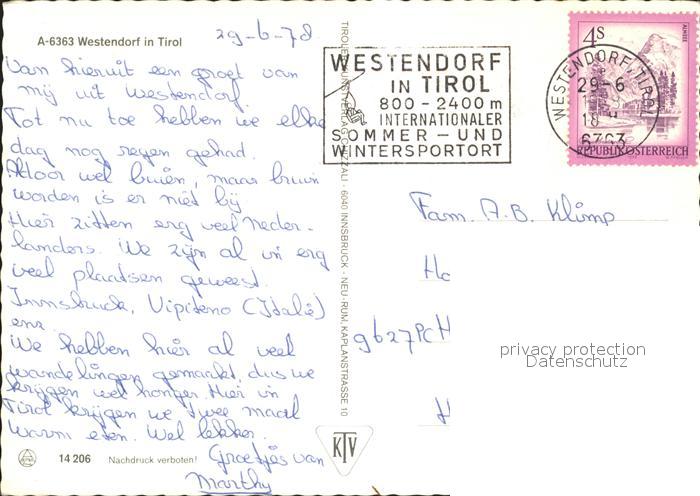 A-6363 Westendorf in Tirol
29-6-78
Van hieruit een groet van
mij uit Westendorf.
Tot nu toe hebben we elke
dag nog regen gehad.
Alloor wel buien, maar bruin
worden is er niet bij
Hier zitten erg veel Neder-
landers. We zijn al in erg
veel plaatsen geweest.
Innsbruck, Vipiteno (Italië)
enz.
We hebben hier al veel
wandelingen gemaakt, dus we
krijgen wel honger. Hier in
Tirol krijgen we twee maal
warm eten. Wel lekker.
Groetjes van
Marthy
14 206 Nachdruck verboten!
TIROLER KUNSTVERLAG CHIZZALI · 6040 INNSBRUCK - NEU-RUM, KAPLANSTRASSE 10
KTV
WESTENDORF
IN TIROL
800-2400 m
INTERNATIONALER
SOMMER- UND
WINTERSPORTORT
WESTENDORF/TIROL
29-6
18
6363
4S
ALMSEE
REPUBLIK ÖSTERREICH
Fam. A.B. Klimp
Ho
9627PC H
H
privacy protection
Datenschutz